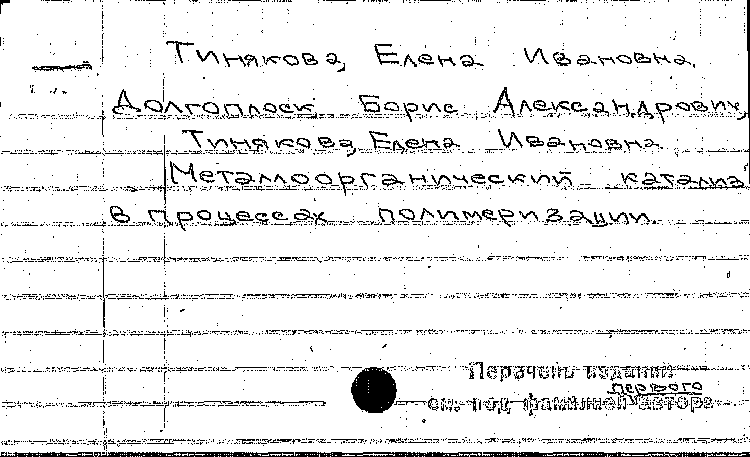 Тинякова, Елена Ивановна.
Долгоплоск, Борис Александрович,
Тинякова, Елена Ивановна
Металлоорганический катализ
в процессах полимеризации.
Перечень изданий
первого
см. под фамилией автора